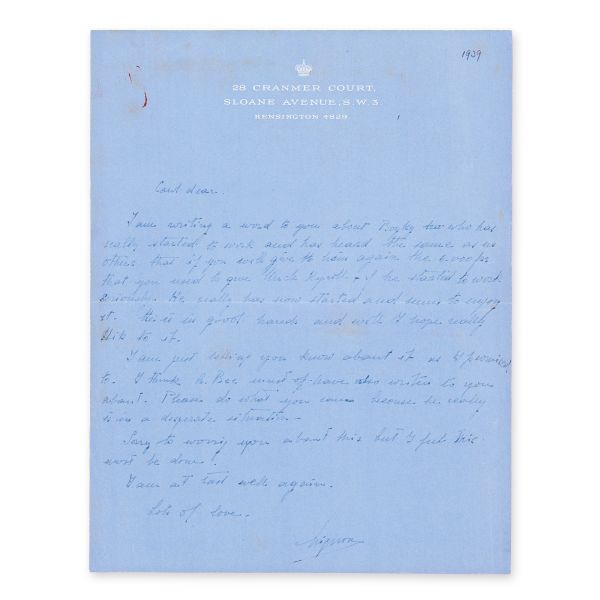 1939
28 CRANMER COURT,
SLOANE AVENUE, S.W.3.
KENSINGTON 4829.
dear
I am writing a word to you about who has
really started to work and has heard the same as us
others that if you will give to him again the
that you used to give if he started to work
seriously. He really has now started and seems to enjoy
it. He is in good hands and will I hope really
stik to it.
I am just telling you know about it as I promised
to. I think must of have also writen to you
about. Please do what you can he really
is in a desperate situation -
Sorry to worry you about this but I feel this
must be done!
I am at last well again.
Lots of love.